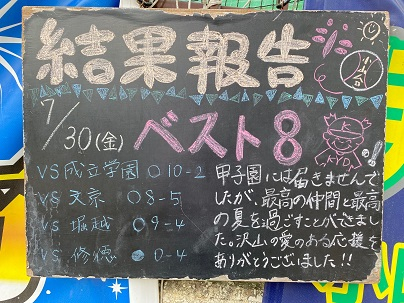 結果報告
7/30(金)
ベスト8
VS成立学園 ○10-2
VS 文京 ○8-5
VS 堀越 ○9-4
VS 修徳 ●0-4
甲子園には届きませんで
したが、最高の仲間と最高
の夏を過ごすことができまし
た。沢山の愛のある応援を
ありがとうございました!!